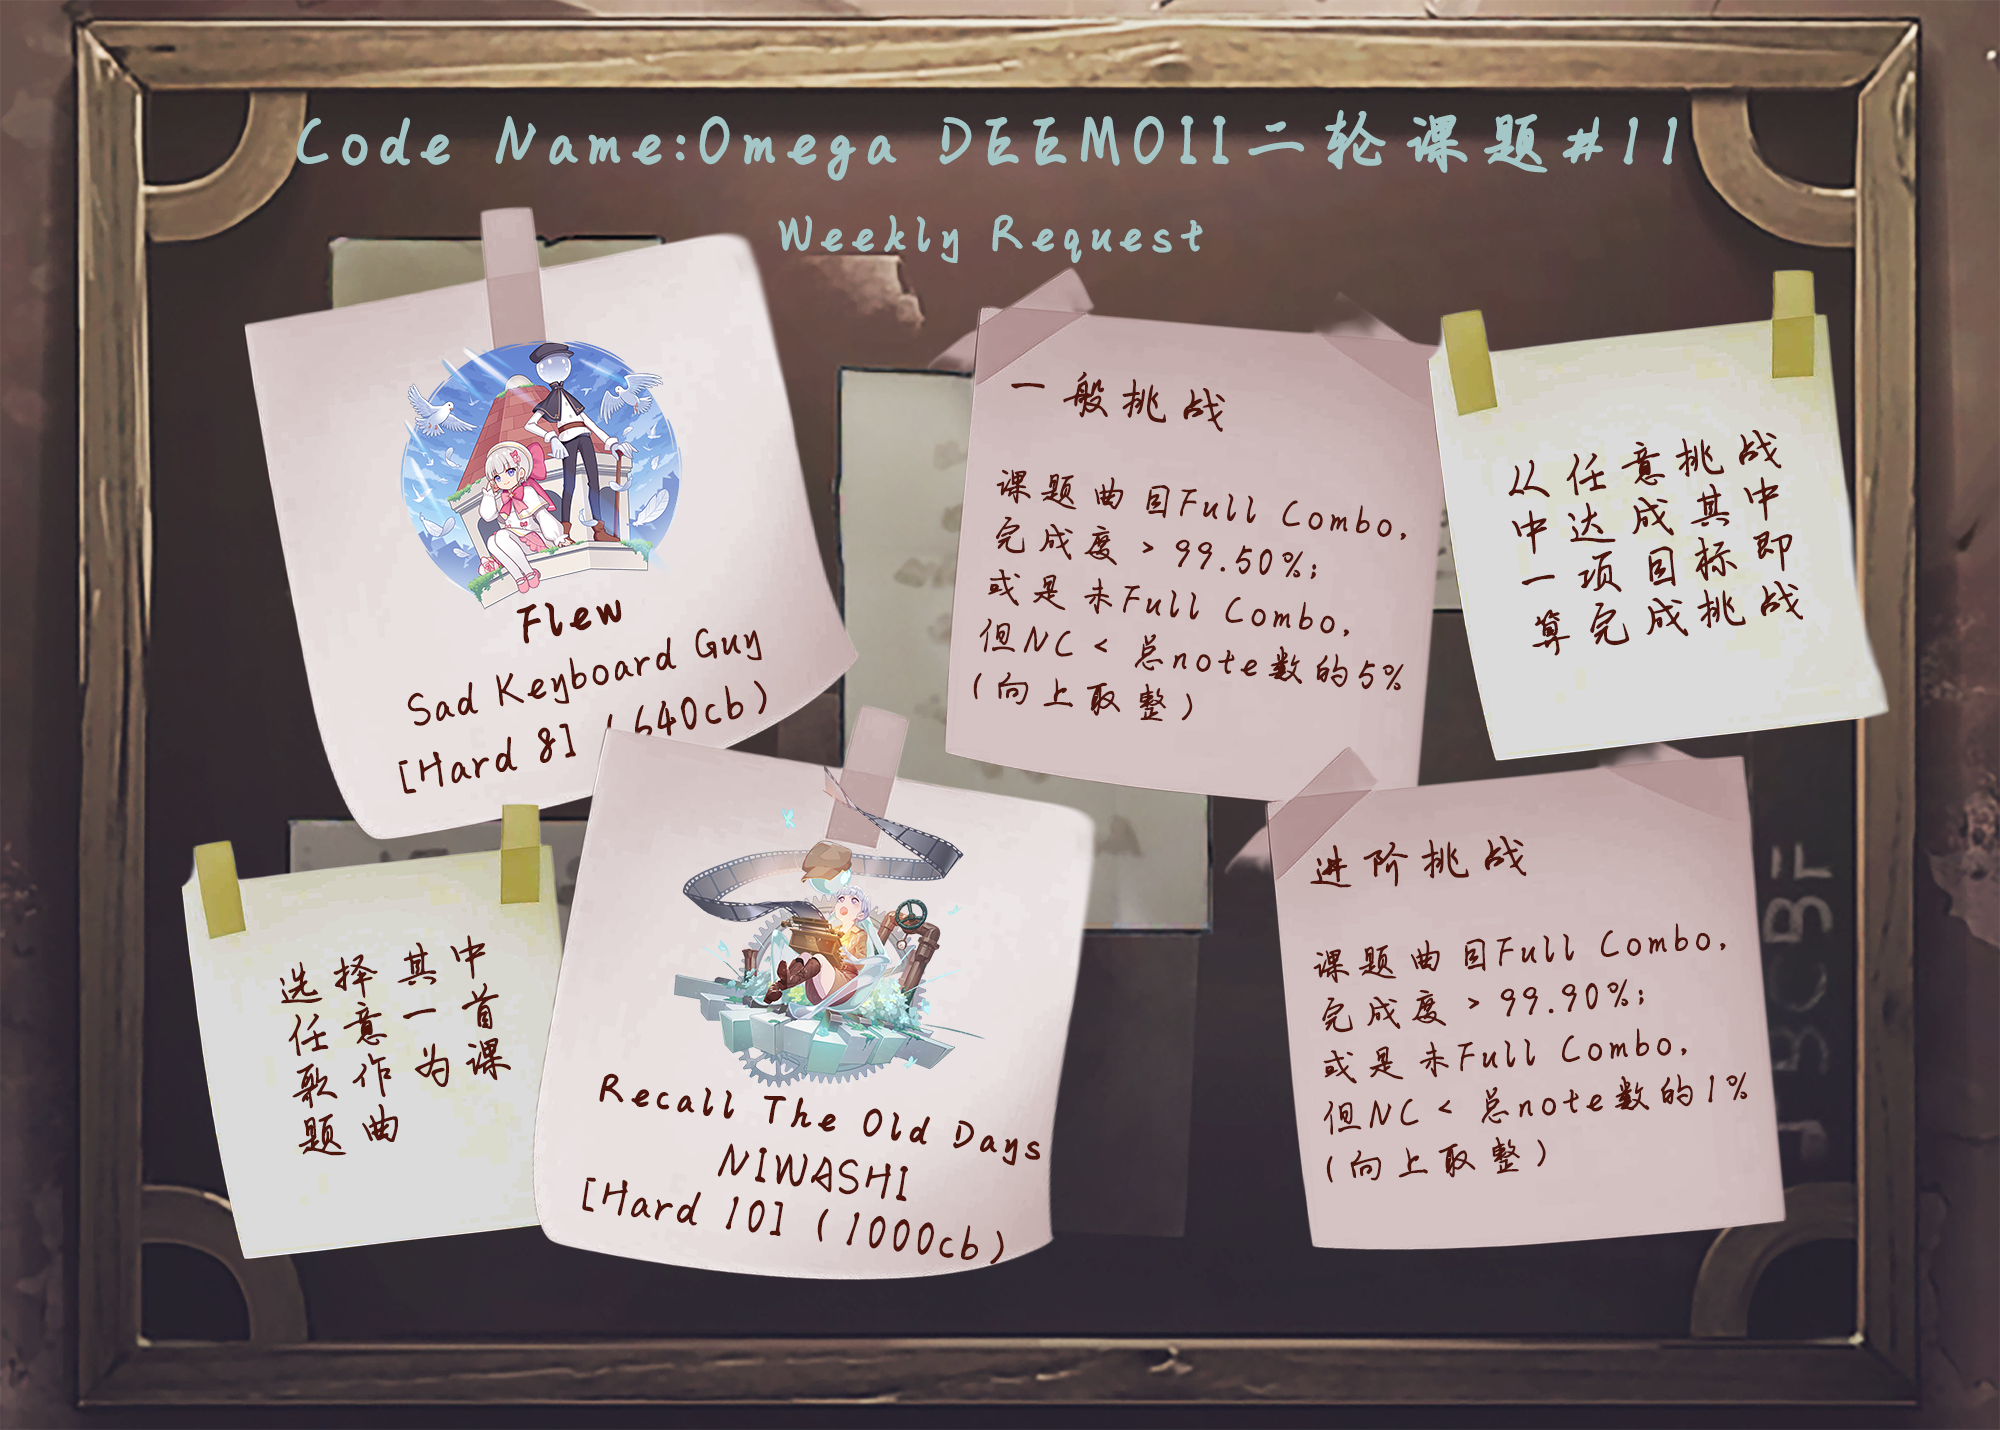 Code Name:Omega DEEMOII二轮课题#11
Weekly Request
Flew
Sad Keyboard Guy
[Hard 8] (640cb)
一般挑战
课题曲目Full Combo,
完成度 > 99.50%;
或是未Full Combo,
但NC < 总note数的5%
(向上取整)
从任意挑战
中达成其中
一项目标即
算完成挑战
选择其中
任意一首
歌作为课
题曲
Recall The Old Days
NIWASHI
[Hard 10] (1000cb)
进阶挑战
课题曲目Full Combo,
完成度 > 99.90%;
或是未Full Combo,
但NC < 总note数的1%
(向上取整)